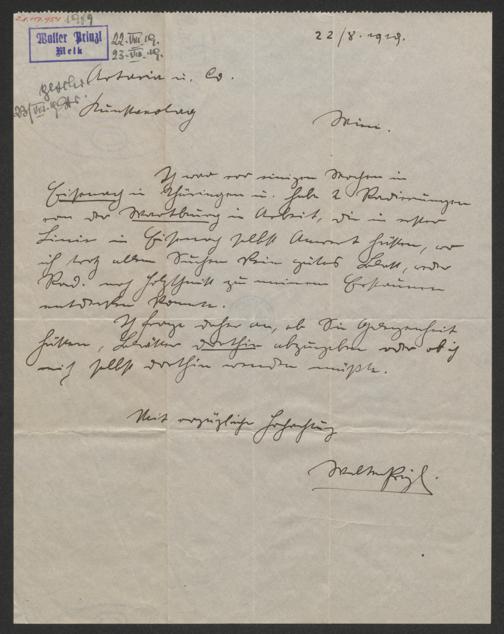 1919
Walter Prinzl
Melk
22.VIII.19.
23.VIII.19.
22/8. 1919.
Artaria u. Co.
Kunstverlag
Wien.
Ich war vor einigen Wochen in
Eisenach in Thüringen u. habe 2 Radierungen
von der Wartburg in Arbeit, die in erster
Linie in Eisenach selbst Anwert hätten, wo
ich trotz allem Suchen kein gutes Blatt, weder
Rad. noch Holzschnitt zu meinem Erstaunen
entdecken konnte.
Ich frage daher an, ob Sie Gelegenheit
hätten, Blätter dorthin abzugeben oder ob ich
mich selbst dorthin wenden müßte.
Mit vorzügliche Hochachtung
Walter Prinzl.